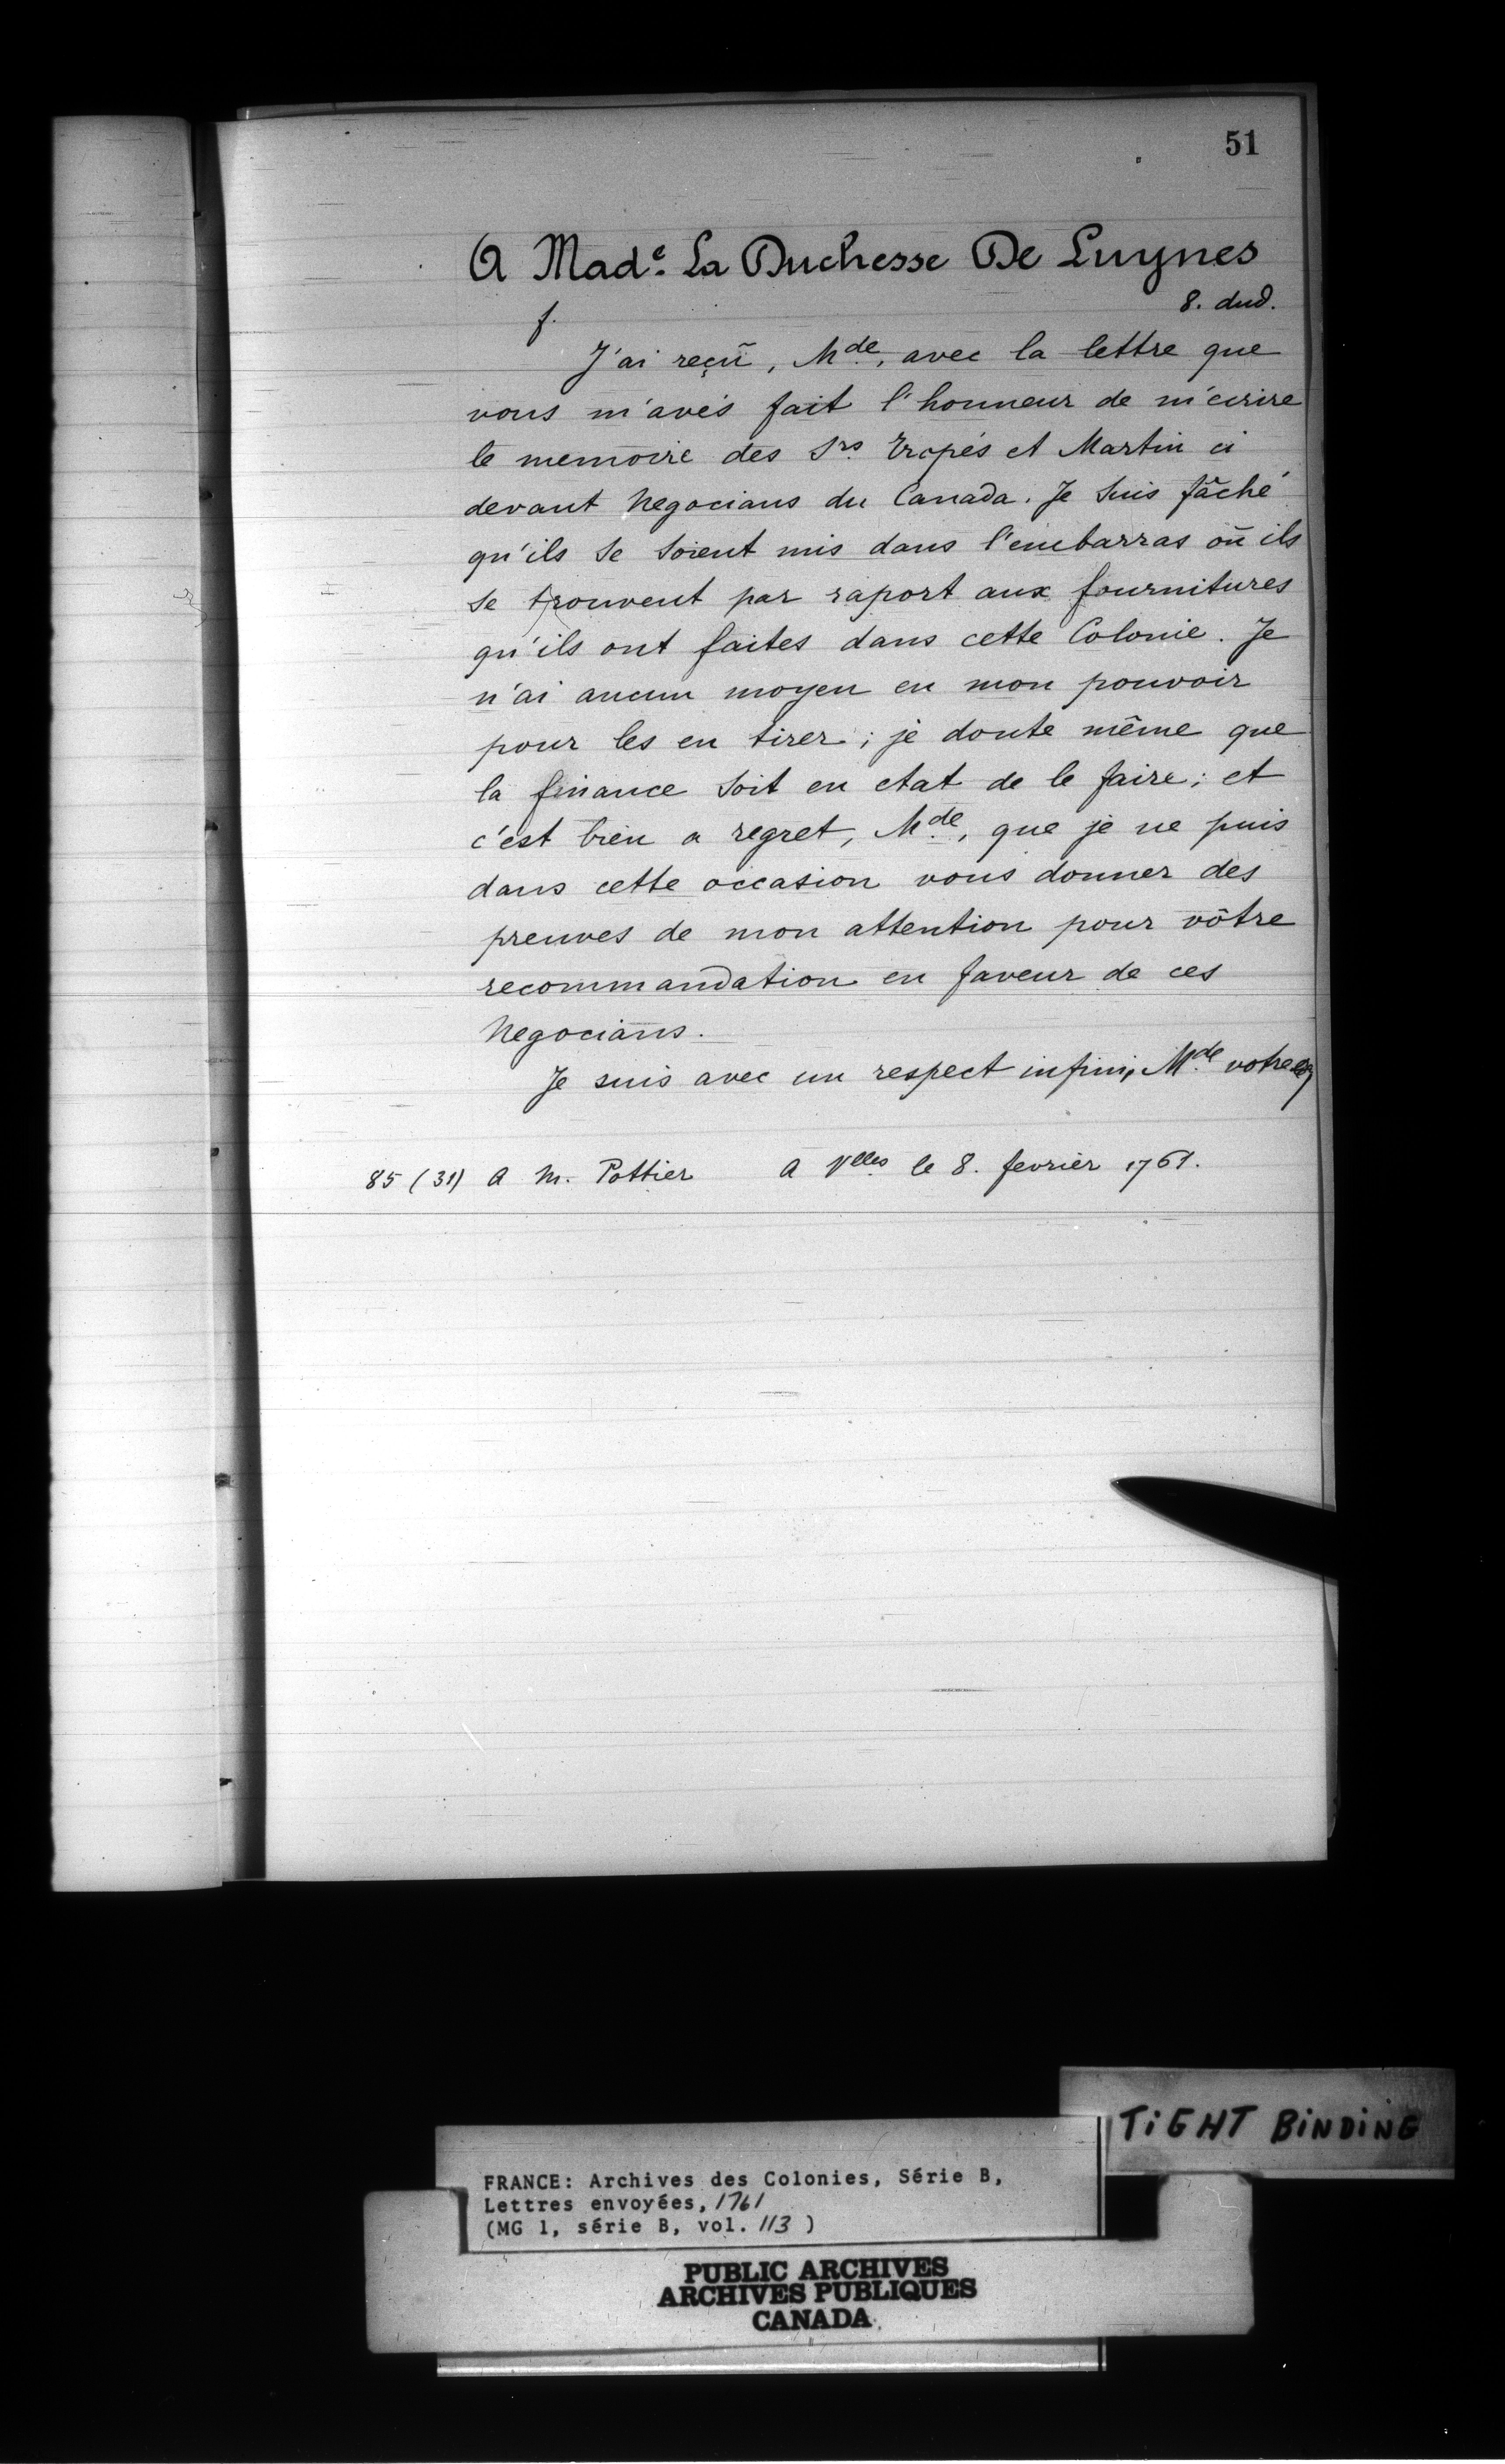 51
A Mad.e La Duchesse De Luynes
8. dud.
f.
J'ai reçû, Mde, avec la lettre que
vous m'avés fait l'honneur de m'ecrire
le memoire des Srs Tropés et Martin ci
devant Negocians du Canada. Je suis fâché
qu'ils se soient mis dans l'embarras où ils
se trouvent par raport aux fournitures
qu'ils ont faites dans cette Colonie. Je
n'ai aucun moyen en mon pouvoir
pour les en tirer; je doute même que
la finance soit en etat de le faire; et
c'est bien a regret, Mde, que je ne puis
dans cette occasion vous donner des
preuves de mon attention pour vôtre
recommandation en faveur de ces
Negocians.
Je suis avec un respect infini, Mde votre
85 (31) A M. Pottier A Vlles le 8. fevrier 1761.
TiGHT BiNDiNG
FRANCE: Archives des Colonies, Série B,
Lettres envoyées, 1761
(MG 1, série B, vol. 113 )
PUBLIC ARCHIVES
ARCHIVES PUBLIQUES
CANADA